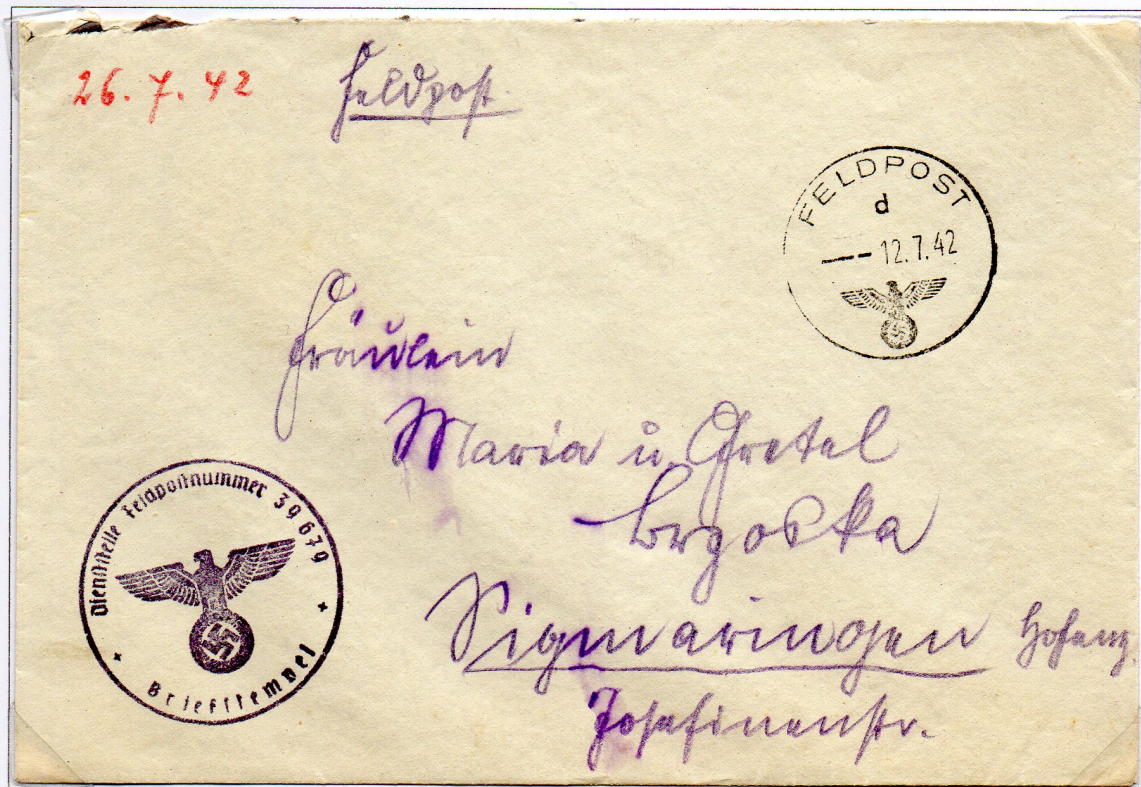 26. 7. 42
Feldpost.
FELDPOST
d
12.7.42
Fräulein
Maria u. Gretel
Brzoska
Sigmaringen Hohenz.
Josefinenstr.
Dienststelle Feldpostnummer 39679
Briefstempel